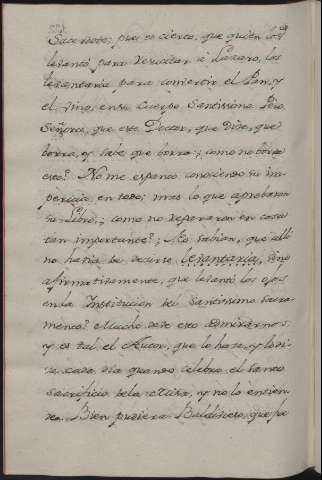 Sacerdote; pues es cierto, que quien los
levantó para resucitar a Lazaro, los
levantaria para convertir el Pan, y
el vino, en su Cuerpo Santissimo. Pero,
Señores, que este Doctor, que dice, que
borra, y sabe que borra; como no borra
esto? No me espanto conociendo su im-
pericia, en todo; mas lo que aprobaron
su Libro; como no repararon en cosa
tan importante? No sabian, que alli
no havia de decirse levantaria, sino
afirmativamente, que levantó los ojos
en la Institucion del Santissimo Sacra-
mento? Mucho deve esto admirarnos,
y es tal el Autor, que lo hace, y lo di-
ce cada dia quando celebra el santo
sacrificio de la Missa, y no lo entien-
de. Bien pudiera Baldivieso, que